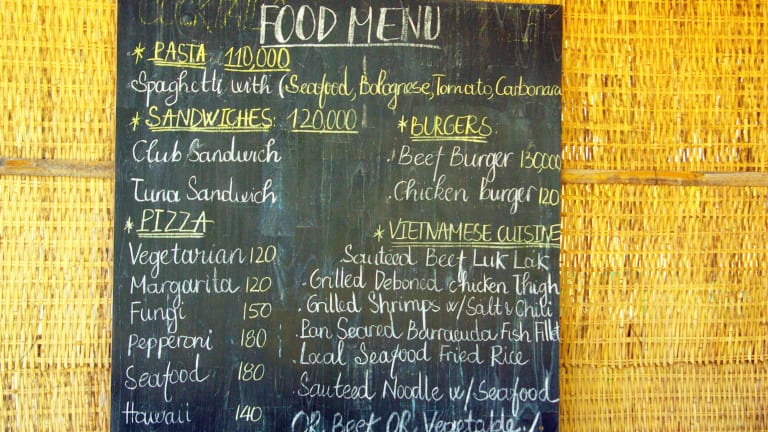 FOOD MENU
* PASTA 110,000
Spaghetti with (Seafood, Bolognese, Tomato, Carbonara
* SANDWICHES: 120,000
Club Sandwich
Tuna Sandwich
* BURGERS:
. Beef Burger 130,000
. Chicken Burger 120
* PIZZA
Vegetarian 120
Margarita 120
Fungi 150
Pepperoni 180
Seafood 180
Hawaii 140
* VIETNAMESE CUISINE
Sauteed Beef Luk Lak
. Grilled Deboned Chicken Thigh
. Grilled Shrimps w/ Salt & Chili
. Pan Seared Barracuda Fish Fillet
. Local Seafood Fried Rice
. Sauteed Noodle w/ Seafood
OR Beef OR Vegetable